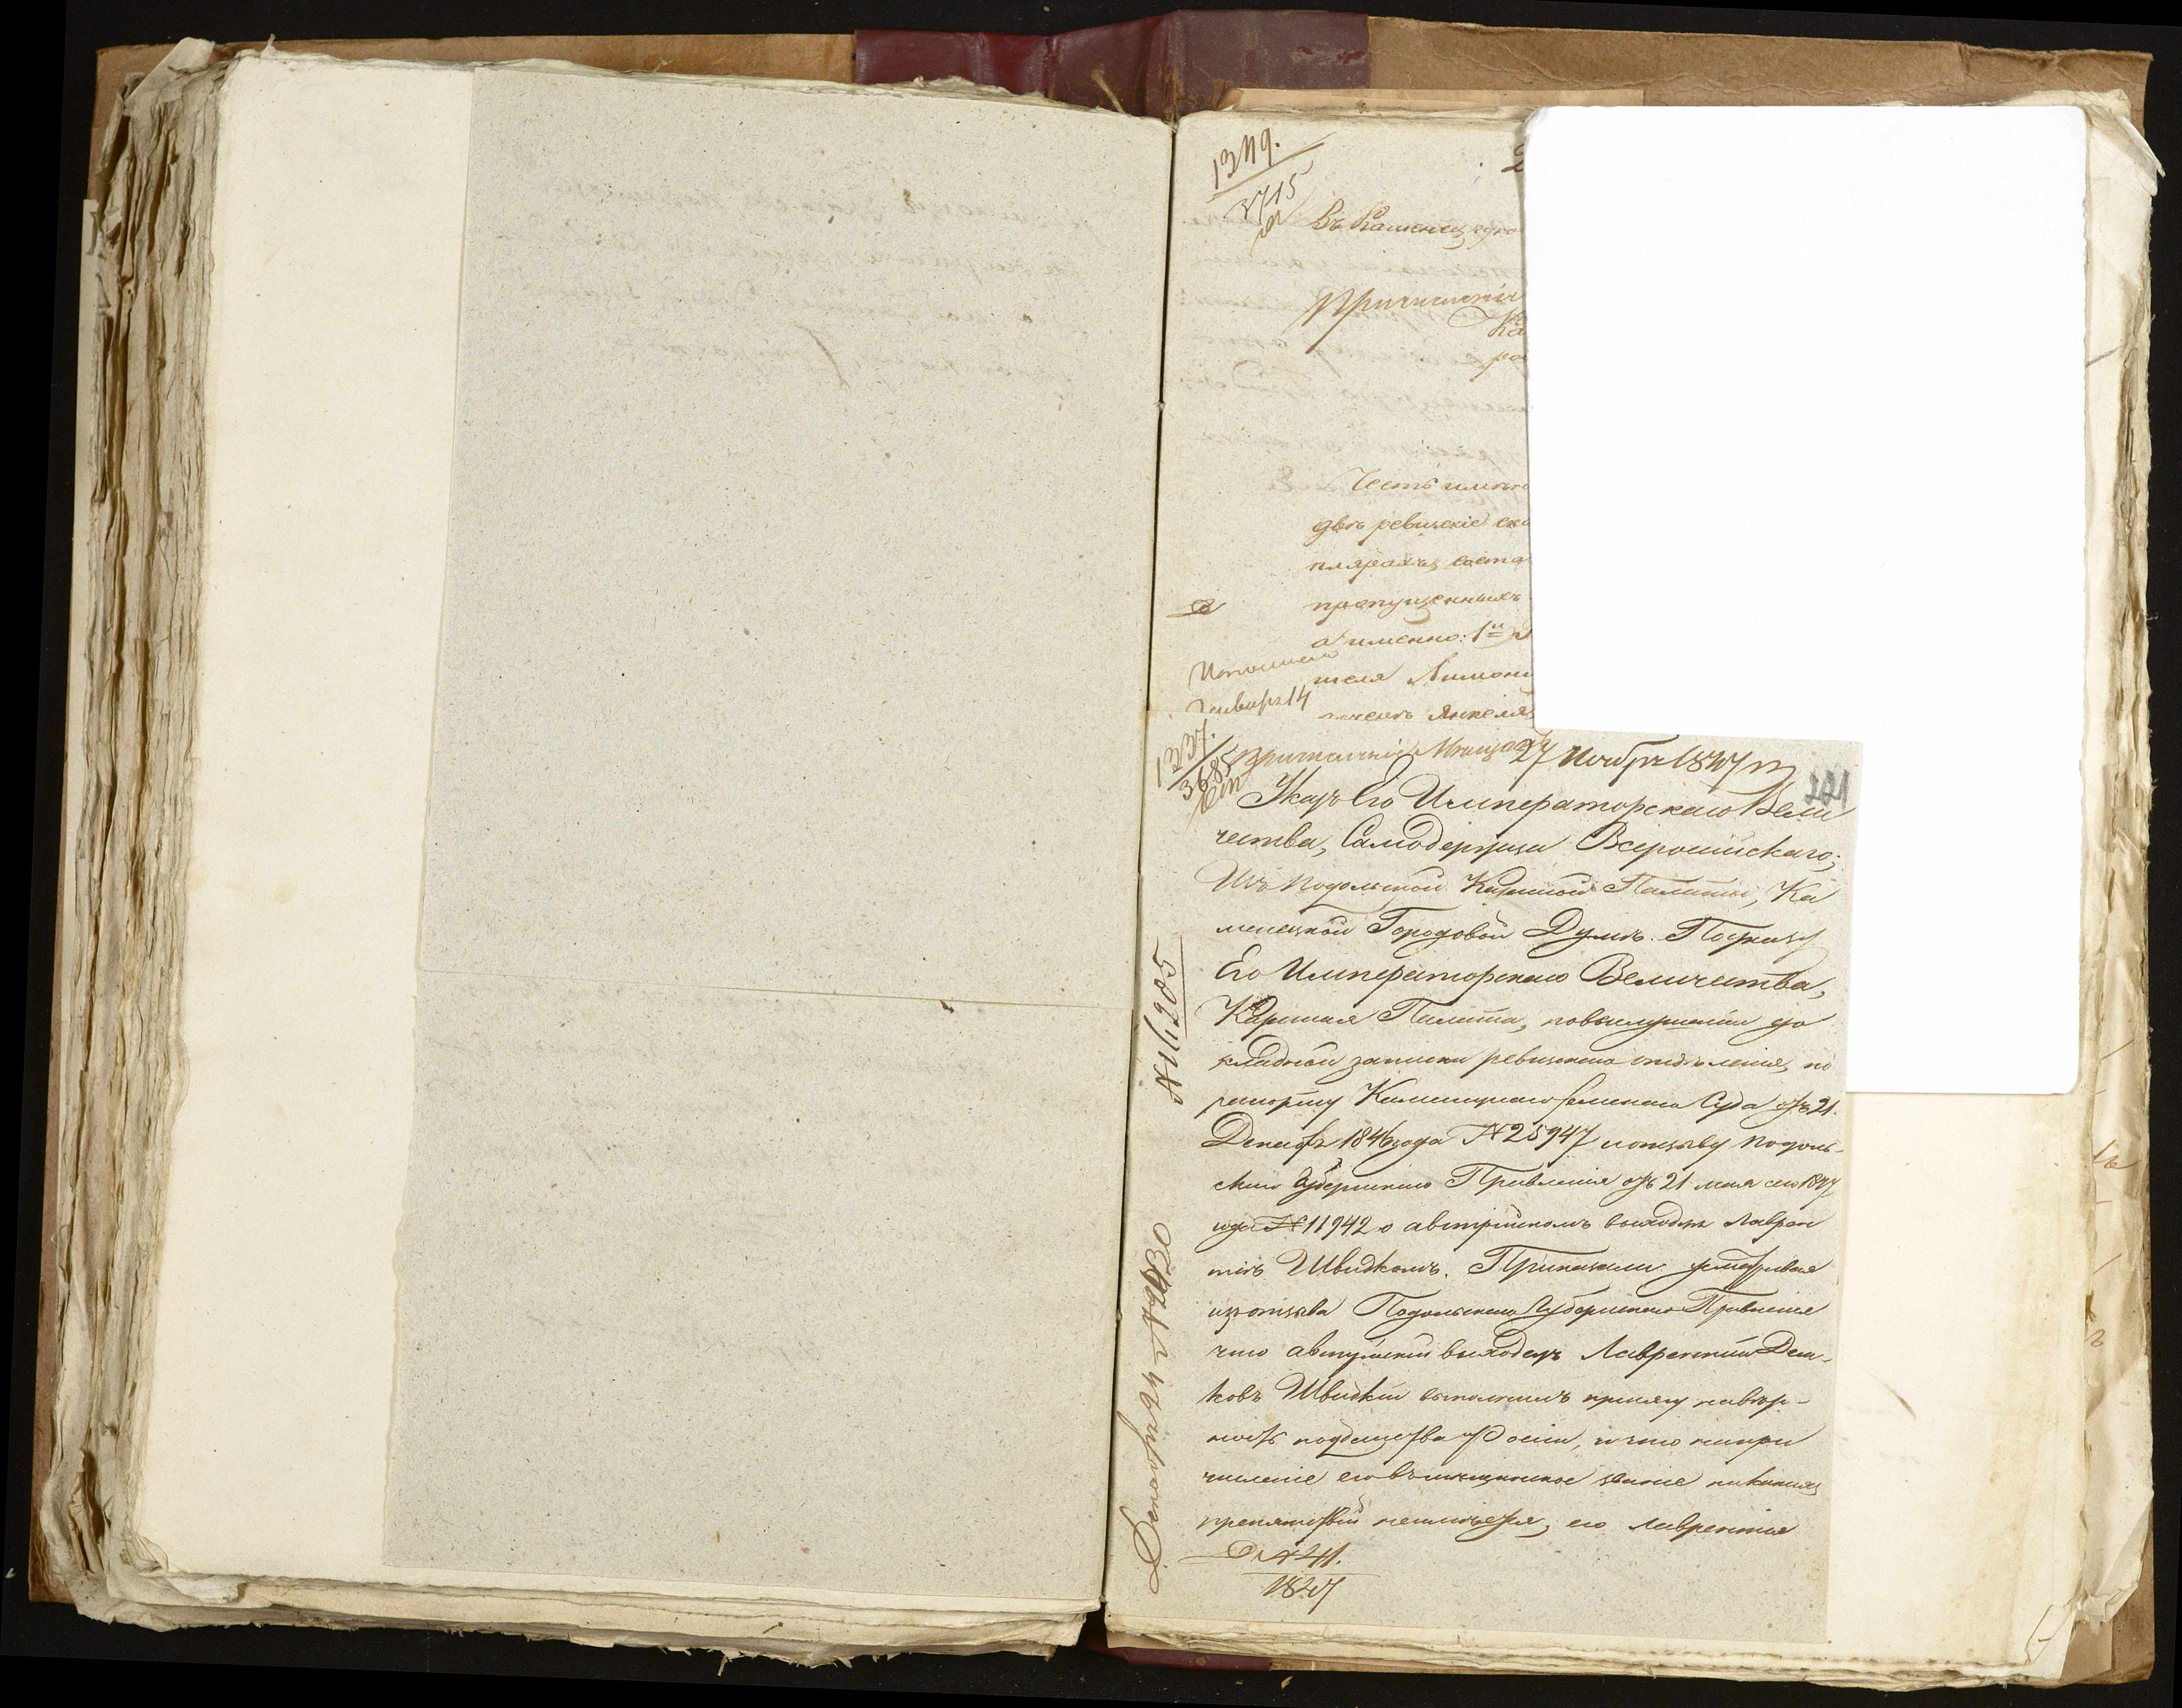 1349.
3715
Въ Каменецкую
Причисленіи
Ка
Честь имею
две ревизскіе ска
плярахъ, соста
пропущенныхъ
а именно: 1й
Исполнено
теля Лимон
Генваря 14
Янкеля
1337.
3685
Причисленіи Мещан 27 Ноября 1847 г
191
Указъ Его Императорскаго Вели
чества, Самодержца Всеросийскаго;
Изъ Подольской Казенной Палаты, Ка
менецкой Городовой Думѣ. По Указу
Его Императорскаго Величества,
Казенная Палата, по выслушаніи до
кладной записки ревизскаго отделенія, по
рапорту Каменецкаго Земскаго Суда отъ 21.
Декабря 1846 года №25947 и отзыву Подоль-
скаго Губернскаго Правленія отъ 21 мая сего 1847
года №11942 о австрійскомъ выходце Лаврен
тіѣ Швидкомъ. Приказали: усматривая
изъ отзыва Подольскаго Губернскаго Правленія
что австрийскій выходецъ Лаврентий Дем-
ковъ Швидкій выполнилъ присягу на вер-
ность подданства Росіи, и что на при
численіе его въ мещанское званіе никакихъ
препятствий неимеется, его Лаврентія
№11205
Декабря 24 №2430
№ 41.
1847